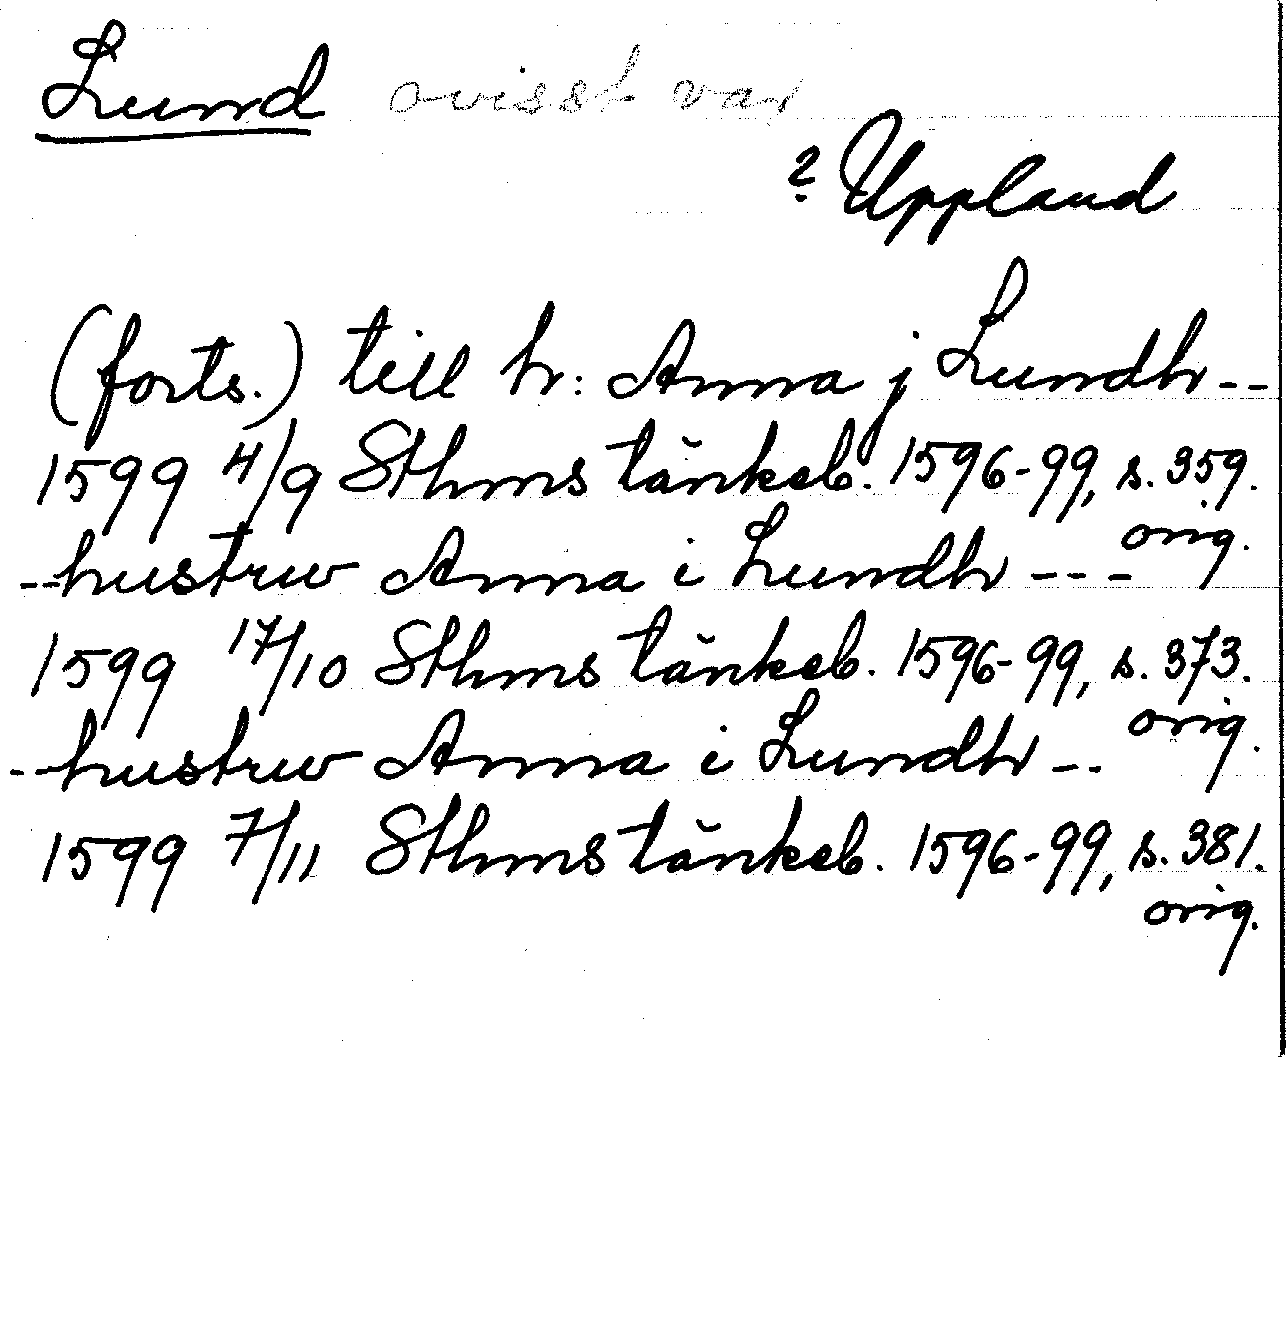 Lund ovisst var
? Uppland
(forts.) till h: Anna j Lundh --
1599 4/9 Sthms tänkeb. 1596-99, s. 359.
orig.
-- hustrw Anna i Lundh ---
1599 17/10 Sthms tänkeb. 1596-99, s. 373.
orig.
-- hustrw Anna i Lundh --
1599 7/11 Sthms tänkeb. 1596-99, s. 381.
orig.